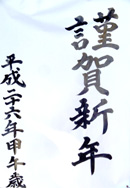 謹賀新年
平成二十六年甲午歳